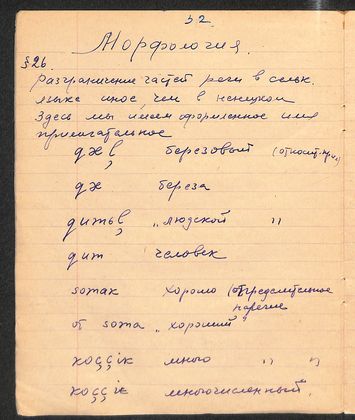 32.
Морфология.
§26.
Разграничение частей речи в сельк.
языке иное, чем в ненецком
Здесь мы имеем оформленное имя
прилагательное
березовый (относит. при.)
береза
„ людской "
дит человек
somak хорошо (определительное
наречие
от soma „ хороший "
koççik много " "
koççik многочисленный.